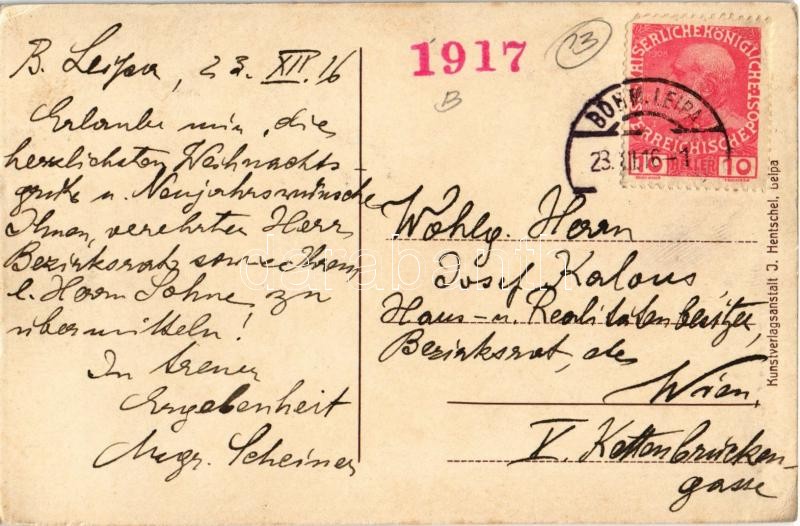 B. Leipa, 23. XII. 16
Erlaube mir, die
herzlichsten Weihnachts-
grüße u. Neujahrswünsche
Ihnen, verehrter Herr
Bezirksrat sowie Ihrem
l. Herrn Sohne zu
übermitteln!
In treuer
Ergebenheit
Mgr. Scheiner
1917
23
B
KAISERLICHEKÖNIGLICHE
ÖSTERREICHISCHE POST
10 HELLER 10
BÖHM. LEIPA
23.XII.16-1
Wohlg. Herrn
Josef Kalous,
Haus- u. Realitätenbesitzer,
Bezirksrat, etc
Wien,
V. Kettenbrücken-
gasse
Kunstverlagsanstalt J. Hentschel, Leipa
darabanth